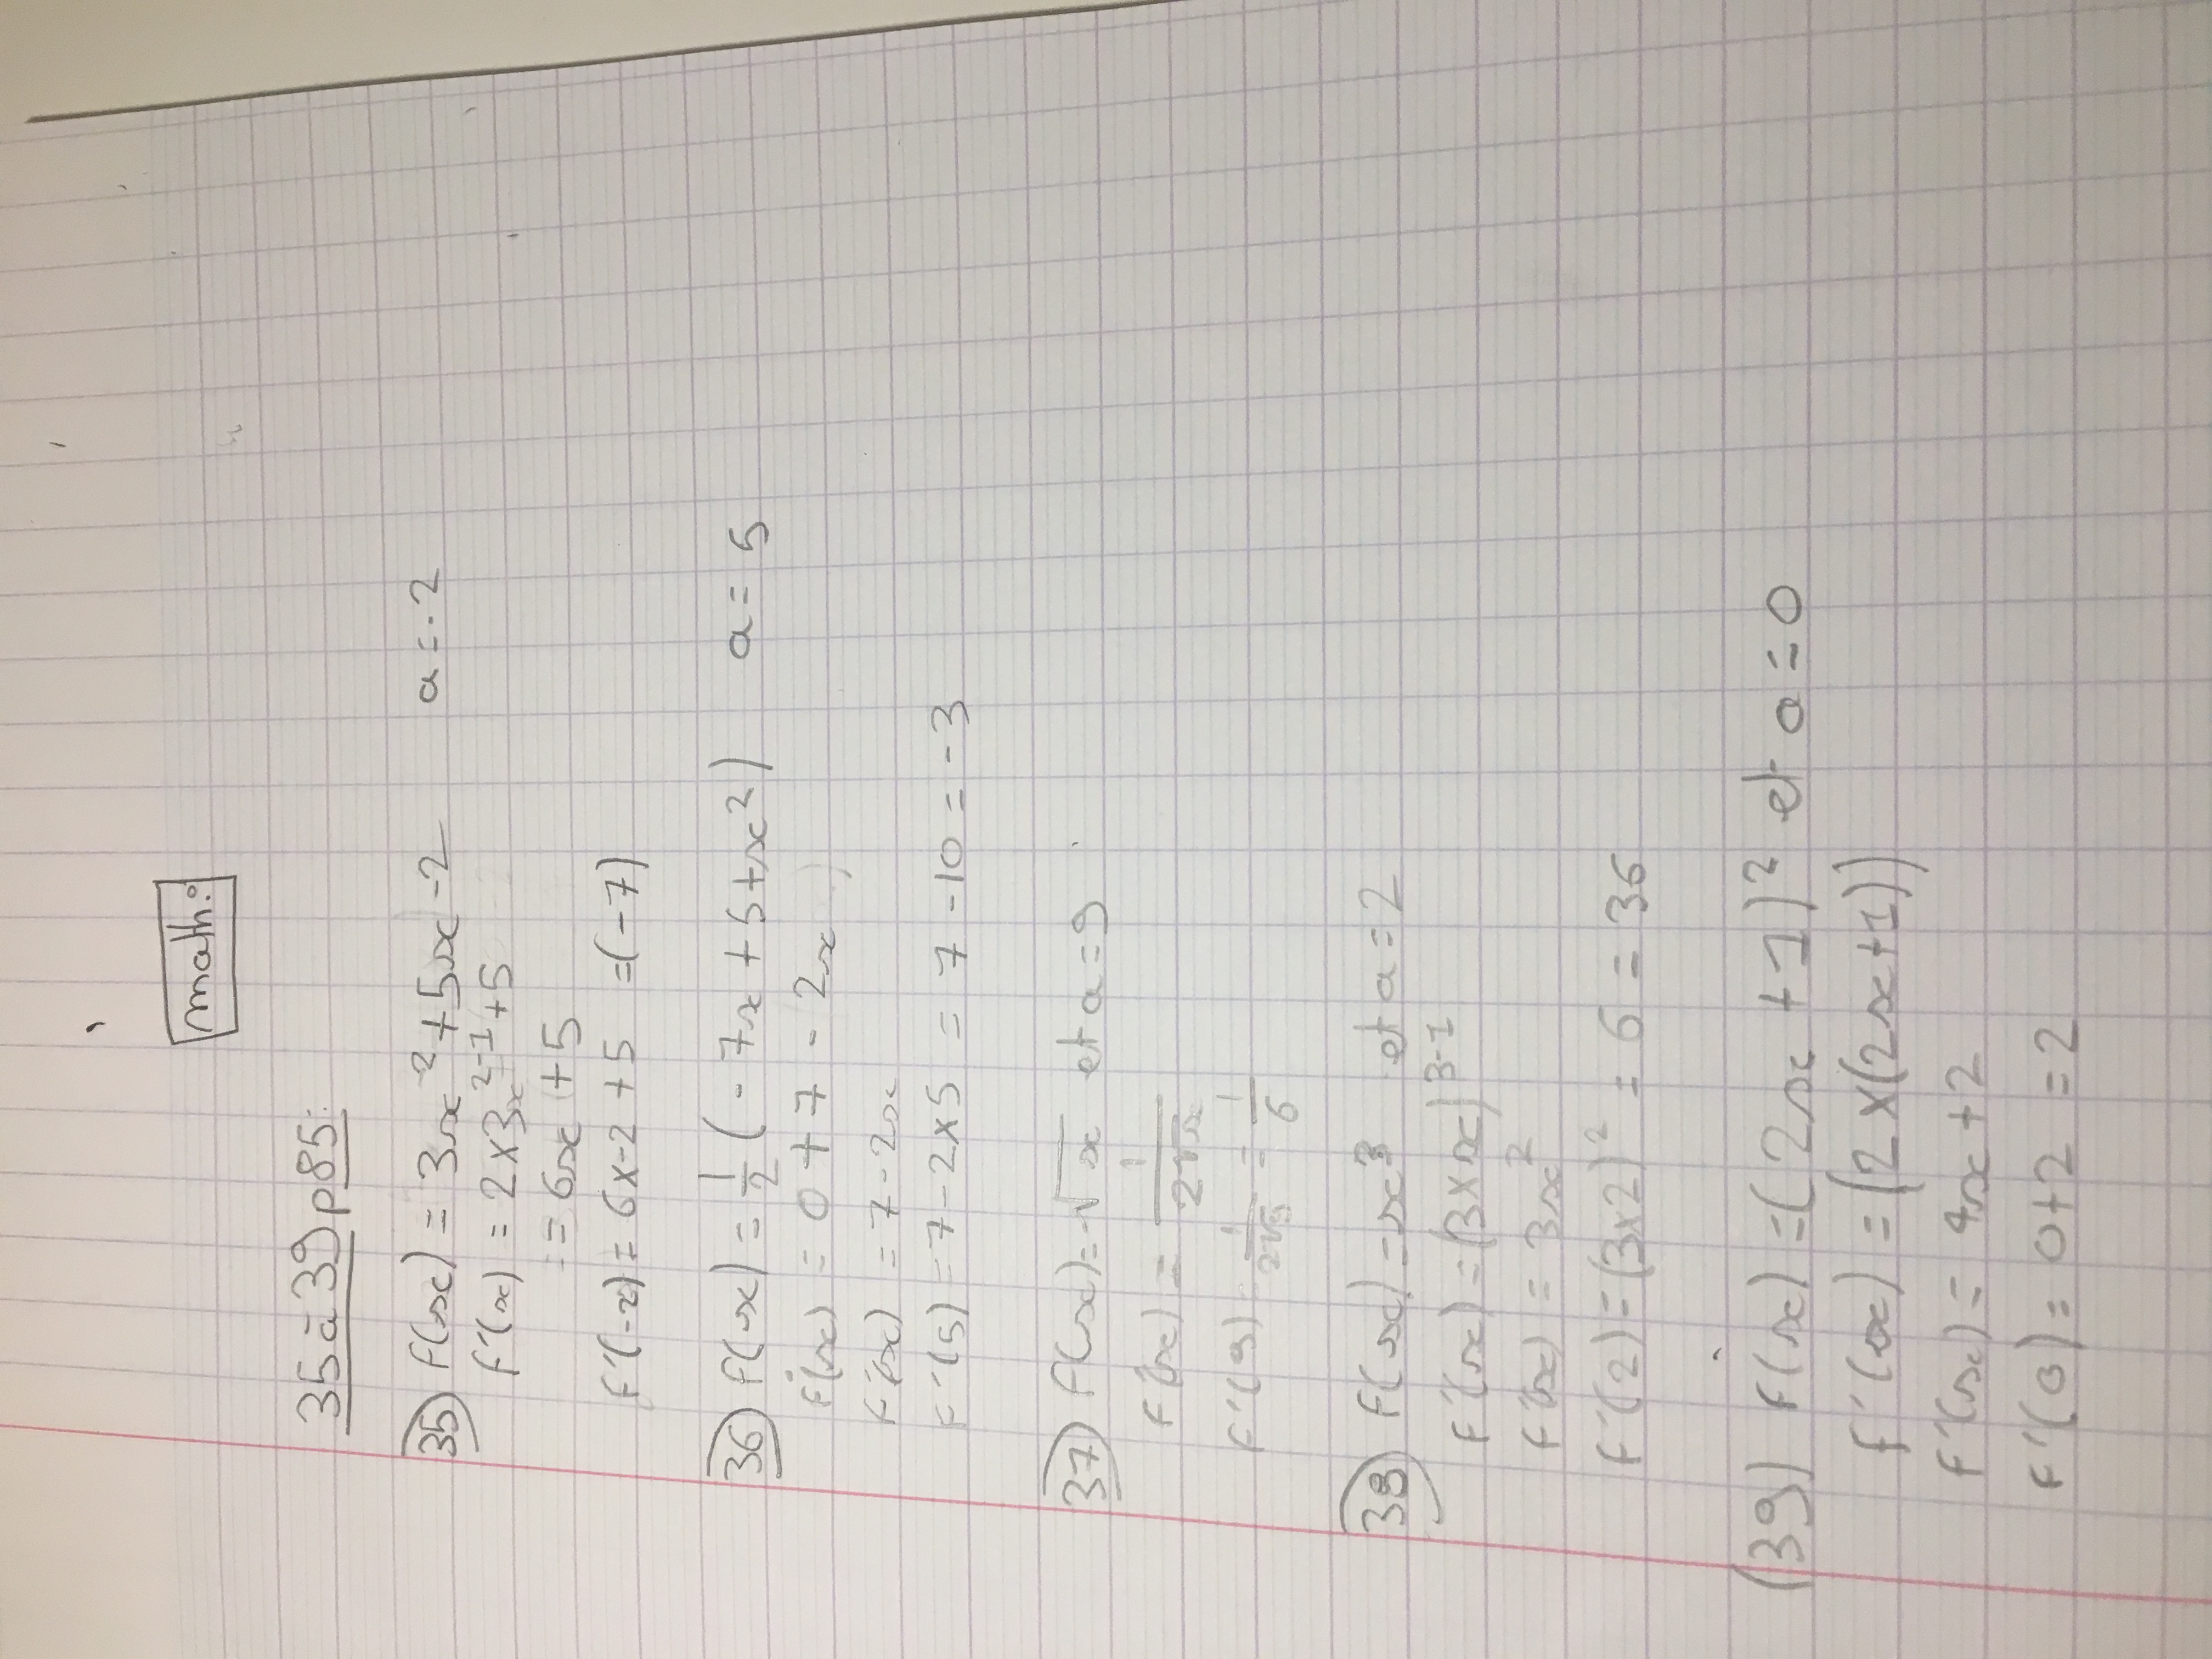 math:
35 à 39 p 85:
35) f(x) = 3x² + 5x - 2 a = -2
f'(x) = 2 x 3x²⁻¹ + 5
= = 6x + 5
f'(-2) = 6 x -2 + 5 = (-7)
36) f(x) = 1/2 (-7x + 5 + x²) a = 5
f'(x) = 0 + 7 - 2x
f'(x) = 7 - 2x
f'(5) = 7 - 2 x 5 = 7 - 10 = -3
37) f(x) = √x et a = 9
f'(x) = 1/2√x
f'(9) = 1/2√9 = 1/6
38) f(x) = x³ et a = 2
f'(x) = (3 x x)³⁻¹
f'(x) = 3x²
f'(2) = (3x2)² = 6 = 36
(39) f(x) = (2x + 1)² et a = 0
f'(x) = (2 x (2x + 1))
f'(x) = 4x + 2
f'(0) = 0 + 2 = 2